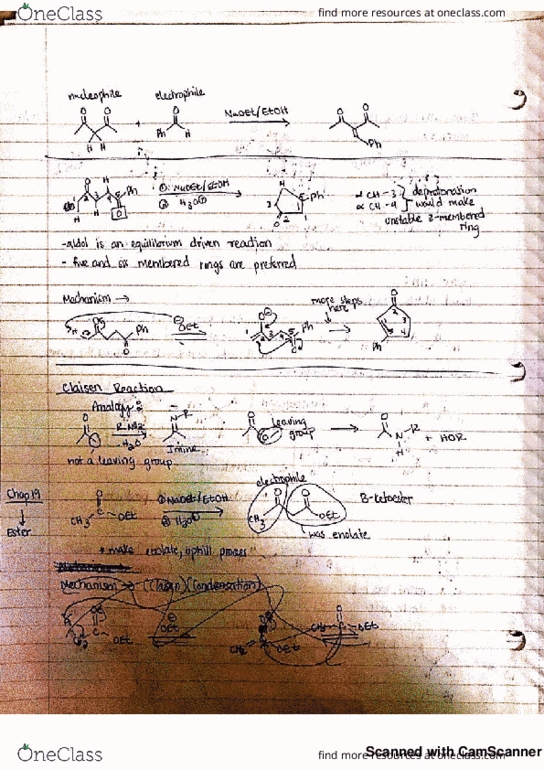 OneClass
find more resources at oneclass.com
nucleophile electrophile
NaOEt/EtOH
Ph H
H H
Ph
① NaOEt/EtOH
② H3O⊕
Ph
α CH-3 } deprotonation
α CH-4 } would make
unstable 3-membered
ring
-aldol is an equilibrium driven reaction
- five and six membered rings are preferred
Mechanism →
Ph
OEt
Ph
more steps
here
Ph
Claisen Reaction
Analogy:
R-NH2
-H2O
N-R
Imine
leaving
group
N-R
H
+ HOR
not a leaving group
Chap 19
↓
Ester
CH3 OEt
① NaOEt/EtOH
② H3O⊕
electrophile
CH3 OEt
was enolate
B-ketoester
* make enolate, uphill process
Mechanism → (Claisen)(Condensation)
OEt
OEt
OEt
OEt
OneClass
find more resources at oneclass.com
Scanned with CamScanner